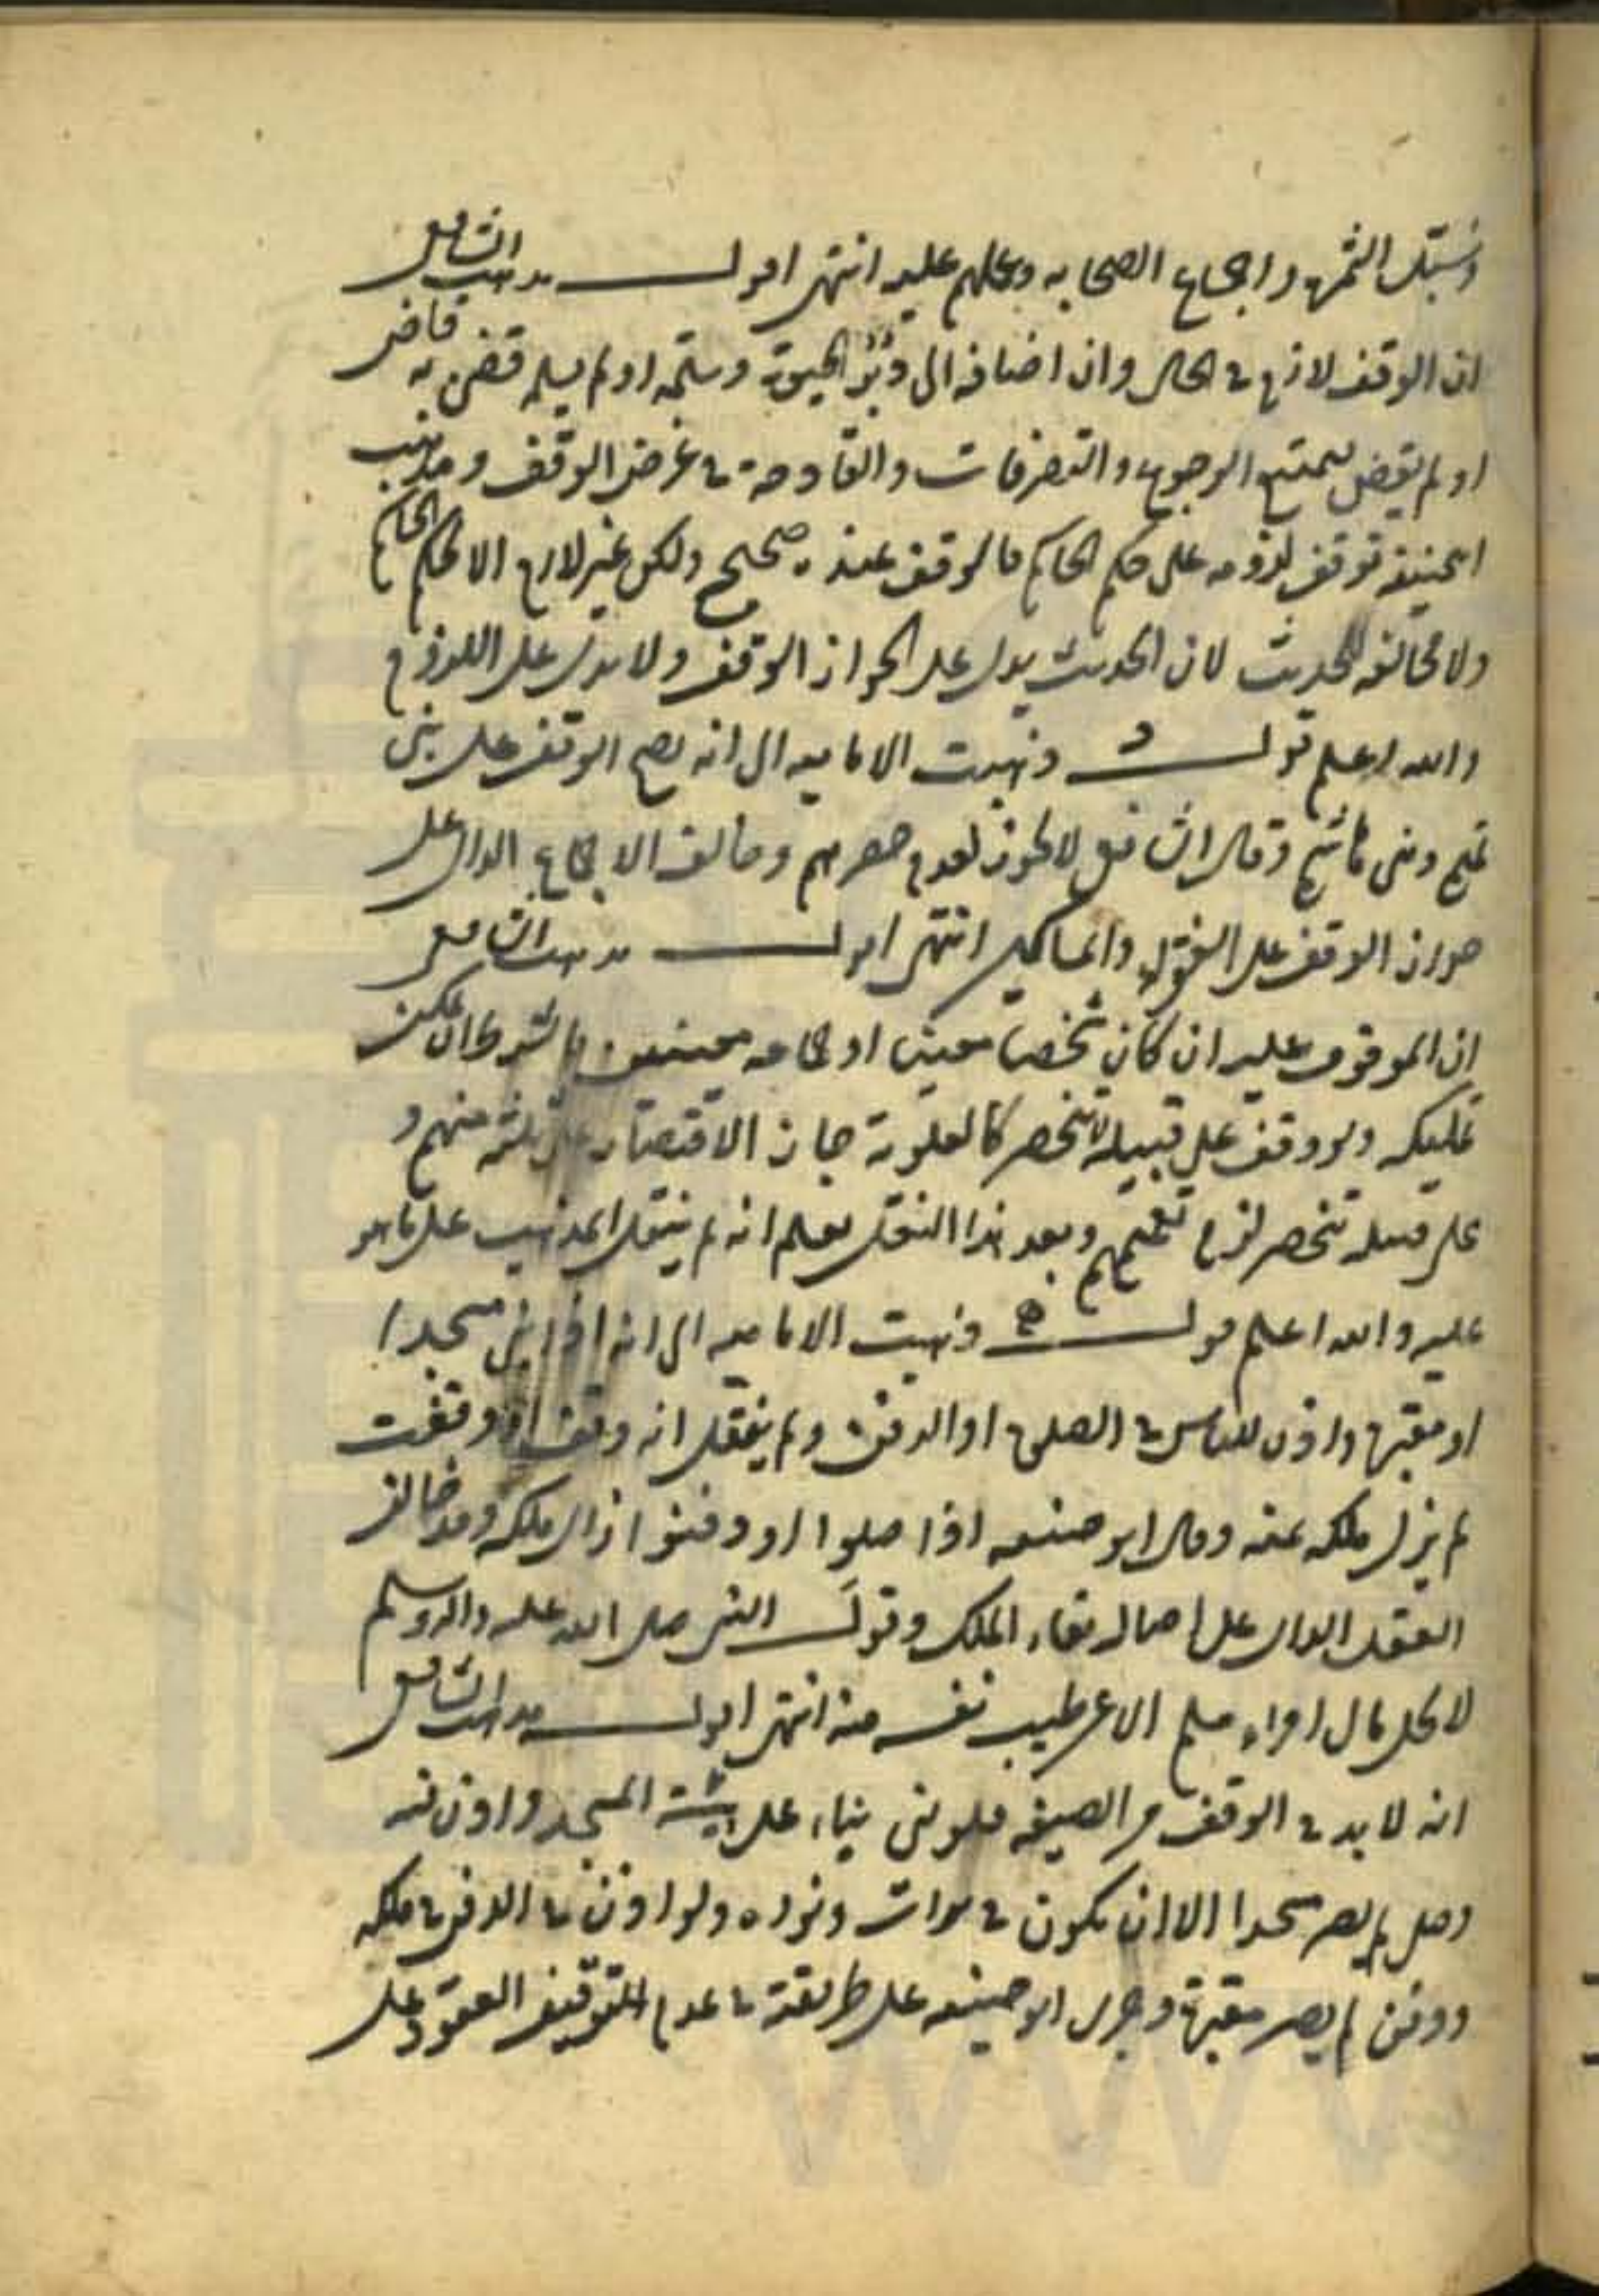 وسبّل الثمرة واجماع الصحابه وعملهم عليه انتهى اقول مذهب الشافعى
ان الوقف لازم فى الحال وان اضافه الى الحيوة وسلمه او لم يسلم قضى به قاض
او لم يقض يمتنع الرجوع والتصرفات والقادحة فى غرض الوقف ومذهب
ابحنيفة توقف لزومه على حكم الحاكم فالوقف عنده صحيح ولكن غير لازم الا بحكم الحاكم
ولا مخالفه للحديث لان الحديث يدل على الجواز الوقف ولا يدل على اللزوم
والله اعلم قول و ذهبت الاماميه الى انه يصح الوقف على بنى
تميم وبنى هاشم وقال الشافعى لا يجوز لعدم حصرهم وخالف الاجماع الدال على
جواز الوقف على الفقراء والمساكين انتهى اقول مذهب الشافعى
ان الموقوف عليه ان كان شخصا معينا او جماعه معينين فالشرط ان يمكن
تمليكه ولو وقف على قبيلة لا تنحصر كالعلوية جاز الاقتصار على ثلثة منهم و
على قبيله تنحصر لزم تعميمهم وبعد هذا النقل يعلم انه لم ينقل المذهب على ما هو
عليه والله اعلم قول ذهبت الاماميه الى انه اذا بنى مسجدا
او مقبرة واذن للناس فى الصلوة او الدفن ولم يقل انه وقف او وقفت
لم يزل ملكه عنه وقال ابو حنيفه اذا صلوا او دفنوا زال ملكه وقد خالف
العقل الدال على اصاله بقاء الملك وقول النبى صلى الله عليه واله وسلم
لا يحل مال امراء مسلم الا عن طيب نفسه منه انتهى اقول مذهب الشافعى
انه لا بد فى الوقف من الصيغه فلو بنى بناء على هيئة المسجد واذن فيه
وصلى لم يصر مسجدا الا ان يكون فى موات ونواه ولو اذن فى الدفن فى ملكه
ودفن لم يصر مقبرة وجرى ابو حنيفه على طريقة فى عدم التوقيف العقود على